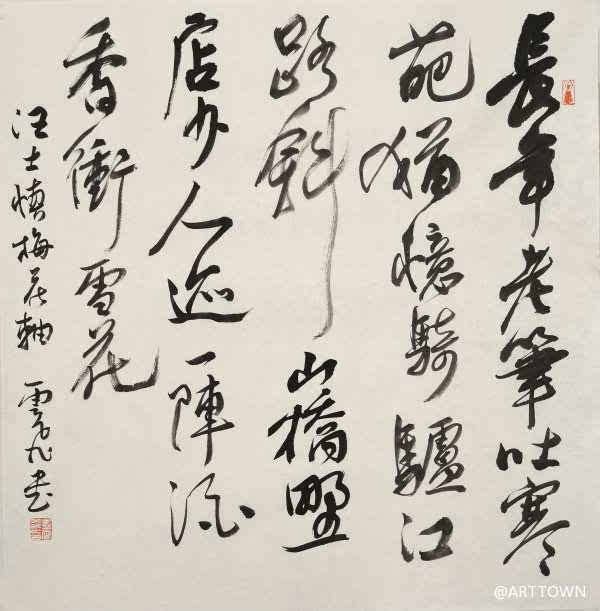 長年老筆吐寒
葩猶憶騎驢江
路斜山橋野
店少人迹一陣酒
香衝雪花
汪士慎梅花軸 雲凡书
@ARTTOWN